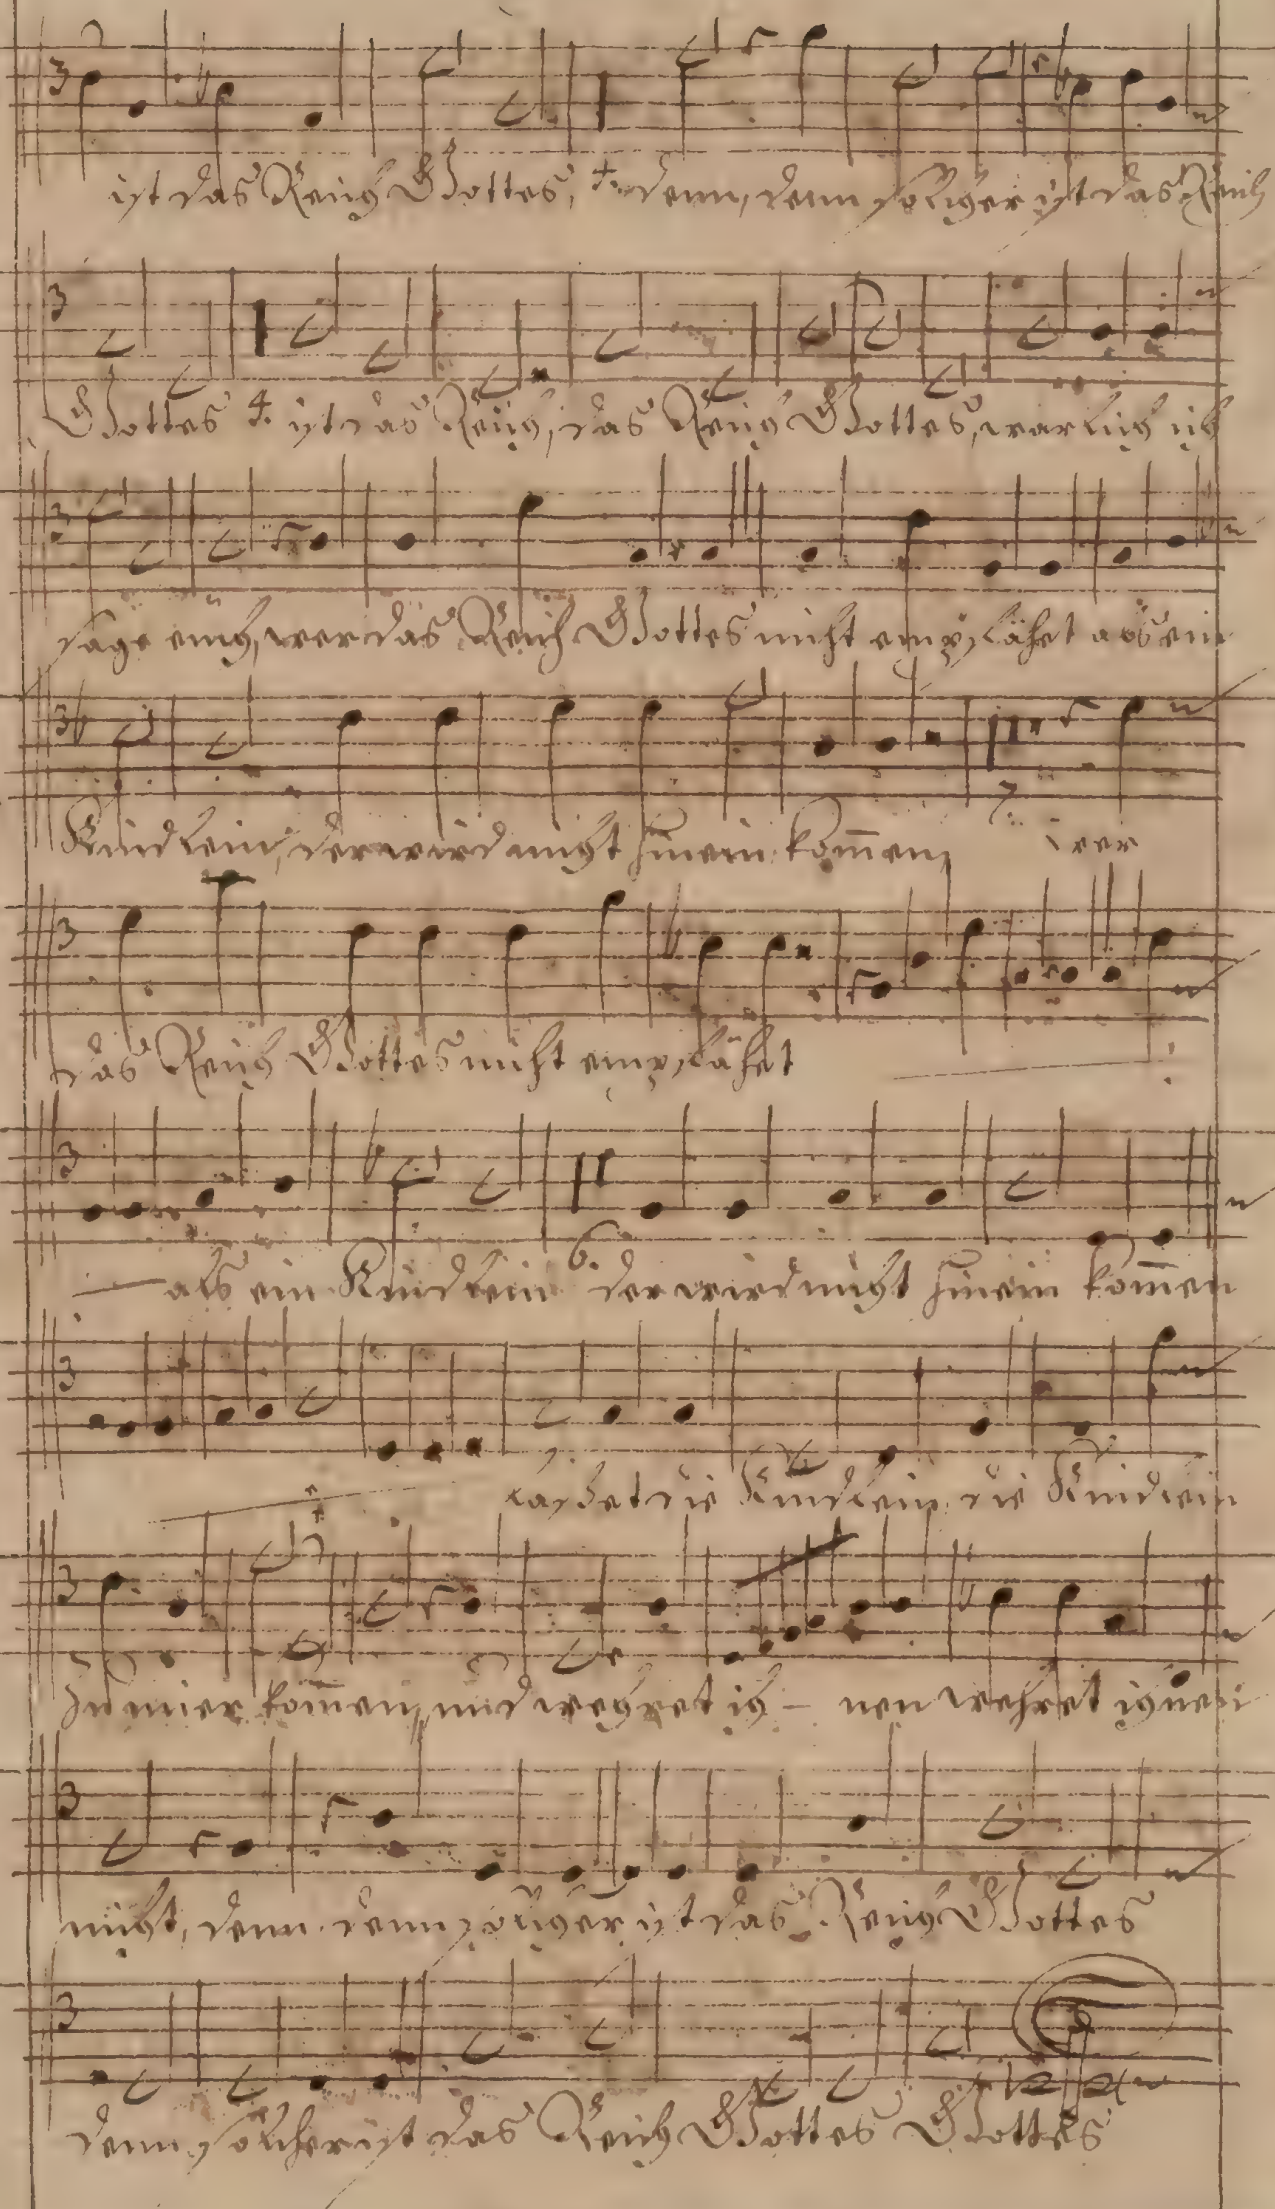 ist das Reich Gottes, 4. denn, denn solcher ist das Reich
Gottes 4. ist das Reich, das Reich Gottes, warlich ich
sage euch, wer das Reich Gottes nicht empfähet als ein
Kindlein, der wird nicht hinein kom̅en, 7. wer
das Reich Gottes nicht empfähet
als ein Kindlein 6. der wird nicht hinein kom̅en
2. lasset die Kindlein, die Kindlein
zu mier kom̅en, und wehret ih - nen wehret ihnen
nicht, denn denn solcher ist das Reich Gottes
denn solcher ist das Reich Gottes Gottes